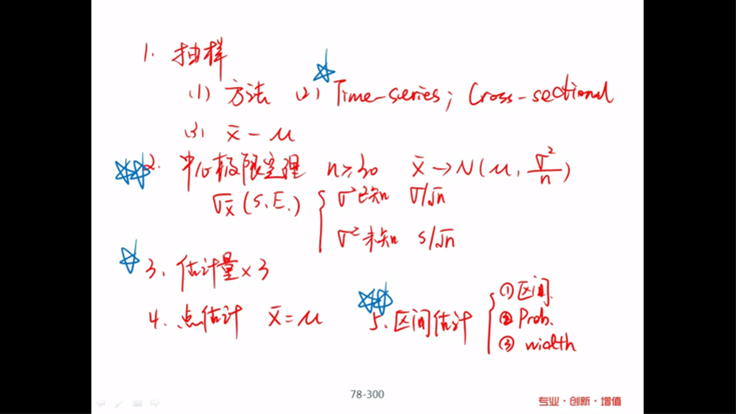 1. 抽样
(1) 方法 (2) Time-series; Cross-sectional
(3) x̄ - μ
2. 中心极限定理 n≥30 x̄→N(μ, σ²/n)
σx̄ (S.E.) { σ²已知 σ/√n
σ²未知 s/√n
3. 估计量×3
4. 点估计 x̄=μ
5. 区间估计 { ① 区间.
② Prob.
③ width
78-300
专业·创新·增值